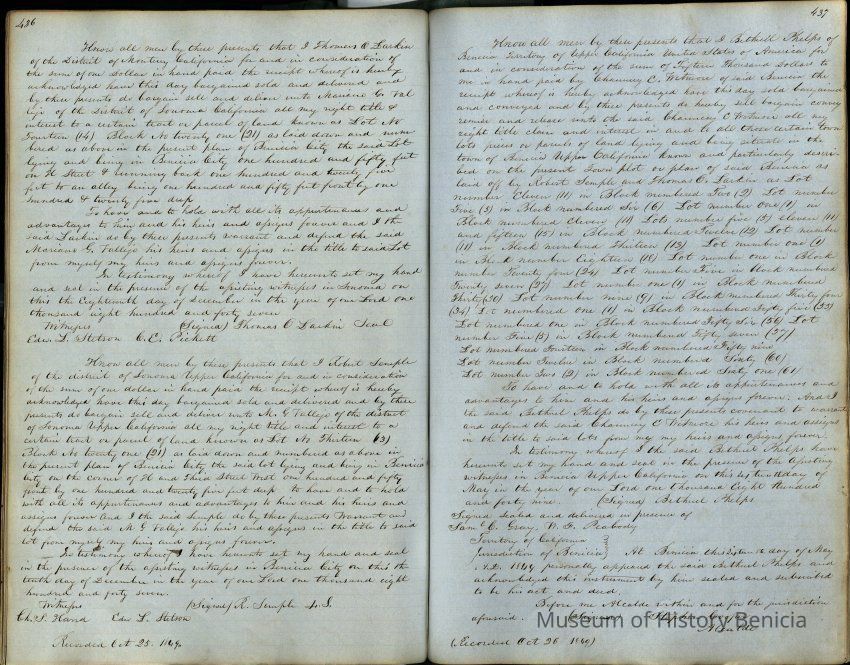 436
Know all men by these presents that I Thomas O Larkin
of the District of Monterey California for and in consideration of
the sum of one Dollar in hand paid the receipt whereof is hereby
acknowledged have this day bargained sold and delivered and
by these presents do bargain sell and deliver unto Mariano G. Val
lejo of the District of Sonoma California all my right title &
interest to a certain tract or parcel of land known as Lot No
Fourteen (14) Block No twenty one (21) as laid down and num
bered as above in the present plan of Benicia City the said Lot
lying and being in Benicia City one hundred and fifty feet
on H Street & running back one hundred and twenty five
feet to an alley being one hundred and fifty feet front by one
hundred & twenty five deep
To have and to hold with all its appurtenances and
advantages to him and his heirs and assigns forever and I the
said Larkin do by these presents warrant and defend the said
Mariano G. Vallejo his heirs and assigns in the title to said Lot
from myself my heirs and assigns forever.
In testimony whereof I have hereunto set my hand
and seal in the presence of the assisting witnesses in Sonoma on
this the Eighteenth day of December in the year of our Lord one
thousand eight hundred and forty seven
Witnesses (Signed) Thomas O Larkin Seal
Edw. L. Stetson C. E. Pickett
Know all men by these presents that I Robert Semple
of the district of Sonoma Upper California for and in consideration
of the sum of one dollar in hand paid the receipt whereof is hereby
acknowledged have this day bargained sold and delivered and by these
presents do bargain sell and deliver unto M. G. Vallejo of the district
of Sonoma Upper California all my right title and interest to a
certain tract or parcel of land known as Lot No Thirteen (13)
Block No twenty one (21) as laid down and numbered as above in
the present plan of Benicia City the said lot lying and being in Benicia
City on the corner of H and Third Street West one hundred and fifty
front by one hundred and twenty five feet deep to have and to hold
with all its appurtenances and advantages to him and his heirs and
assigns forever and I the said Semple do by these presents Warrant and
defend the said M G Vallejo his heirs and assigns in the title to said
lot from myself my heirs and assigns forever.
In testimony whereof I have hereunto set my hand and seal
in the presence of the assisting witnesses in Benicia City on this the
tenth day of December in the year of our Lord one thousand eight
hundred and forty seven.
Witnesses (Signed) R. Semple L.S.
Ch. S. Hand Edw L. Stetson
Recorded Oct 25. 1849.
437
Know all men by these presents that I Bethuel Phelps of
Benicia Territory of Upper California United States of America for
and in consideration of the sum of Fifteen Thousand dollars to
me in hand paid by Chauncey C. Wetmore of said Benicia the
receipt whereof is hereby acknowledged have this day sold bargained
and conveyed and by these presents do hereby sell bargain convey
remise and release unto the said Chauncey C Wetmore all my
right title claim and interest in and to all those certain town
lots pieces or parcels of land lying and being situate in the
town of Benicia Upper California known and particularly descri
bed on the present Town plot or plan of said Benicia as
laid off by Robert Semple and Thomas O. Larkin as Lot
number Eleven (11) in Block numbered Two (2) Lot number
Five (5) in Block numbered Six (6) Lot number One (1) in
Block numbered Eleven (11) Lots number five (5) eleven (11)
and fifteen (15) in Block numbered Twelve (12) Lot number
(11) in Block numbered Thirteen (13) Lot number one (1)
in Block number Eighteen (18) Lot number one in Block
number Twenty four (24) Lot number Five in Block numbered
Twenty seven (27) Lot number one (1) in Block numbered
Thirty (30) Lot number nine (9) in Block numbered Thirty four
(34) Lot numbered one (1) in Block numbered Fifty five (55)
Lot numbered one in Block numbered Fifty Six (56) Lot
number Five (5) in Block numbered Fifty seven (57)
Lot numbered Fourteen in Block numbered Fifty nine
Lot number Twelve in Block numbered Sixty (60)
Lot number Two (2) in Block numbered Sixty one (61)
To have and to hold with all its appurtenances and
advantages to him and his heirs and assigns forever. And I
the said Bethuel Phelps do by these presents covenant to warrant
and defend the said Chauncey C Wetmore his heirs and assigns
in the title to said lots from me my heirs and assigns forever.
In testimony whereof I the said Bethuel Phelps have
hereunto set my hand and seal in the presence of the assisting
witnesses in Benicia Upper California on this day of
May in the year of our Lord one thousand Eight Hundred
and forty nine (Signed) Bethuel Phelps
Signed Sealed and delivered in presence of
Sam C. Gray. W. F. Peabody
Territory of California
Jurisdiction of Benicia } At Benicia this day of May
A.D. 1849 personally appeared the said Bethuel Phelps and
acknowledged this instrument by him sealed and subscribed
to be his act and deed.
Before me Alcalde within and for the jurisdiction
aforesaid.
Alcalde
(Recorded Oct 26 1849)
Museum of History Benicia